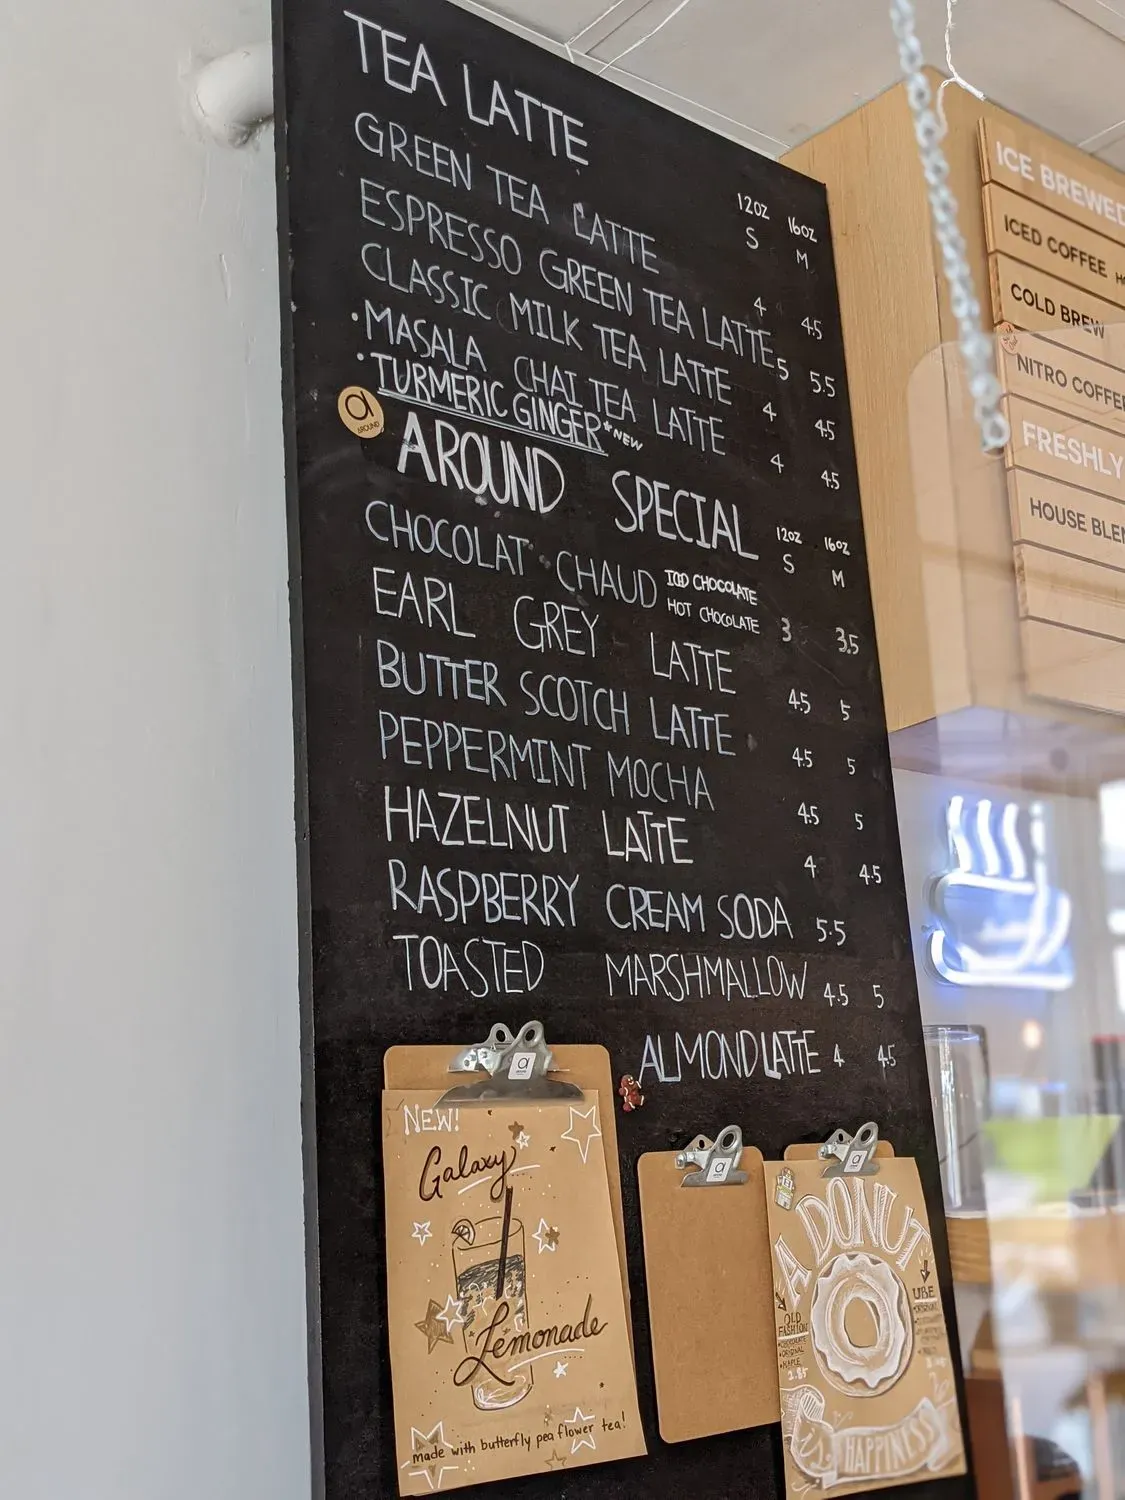 TEA LATTE
12OZ 16OZ
S M
GREEN TEA LATTE 4 4.5
ESPRESSO GREEN TEA LATTE 5 5.5
CLASSIC MILK TEA LATTE 4 4.5
·MASALA CHAI TEA LATTE 4 4.5
·TURMERIC GINGER *NEW
a
AROUND
AROUND SPECIAL
12OZ 16OZ
S M
CHOCOLAT·CHAUD ICED CHOCOLATE
HOT CHOCOLATE 3 3.5
EARL GREY LATTE 4.5 5
BUTTER SCOTCH LATTE 4.5 5
PEPPERMINT MOCHA 4.5 5
HAZELNUT LATTE 4 4.5
RASPBERRY CREAM SODA 5.5
TOASTED MARSHMALLOW 4.5 5
ALMOND LATTE 4 4.5
NEW!
Galaxy
Lemonade
made with butterfly pea flower tea!
A DONUT
OLD
FASHION
CHOCOLATE
ORIGINAL
MAPLE
2.85
UBE
HAPPINESS
ICE BREWED
ICED COFFEE
COLD BREW
NITRO COFFEE
FRESHLY
HOUSE BLEN